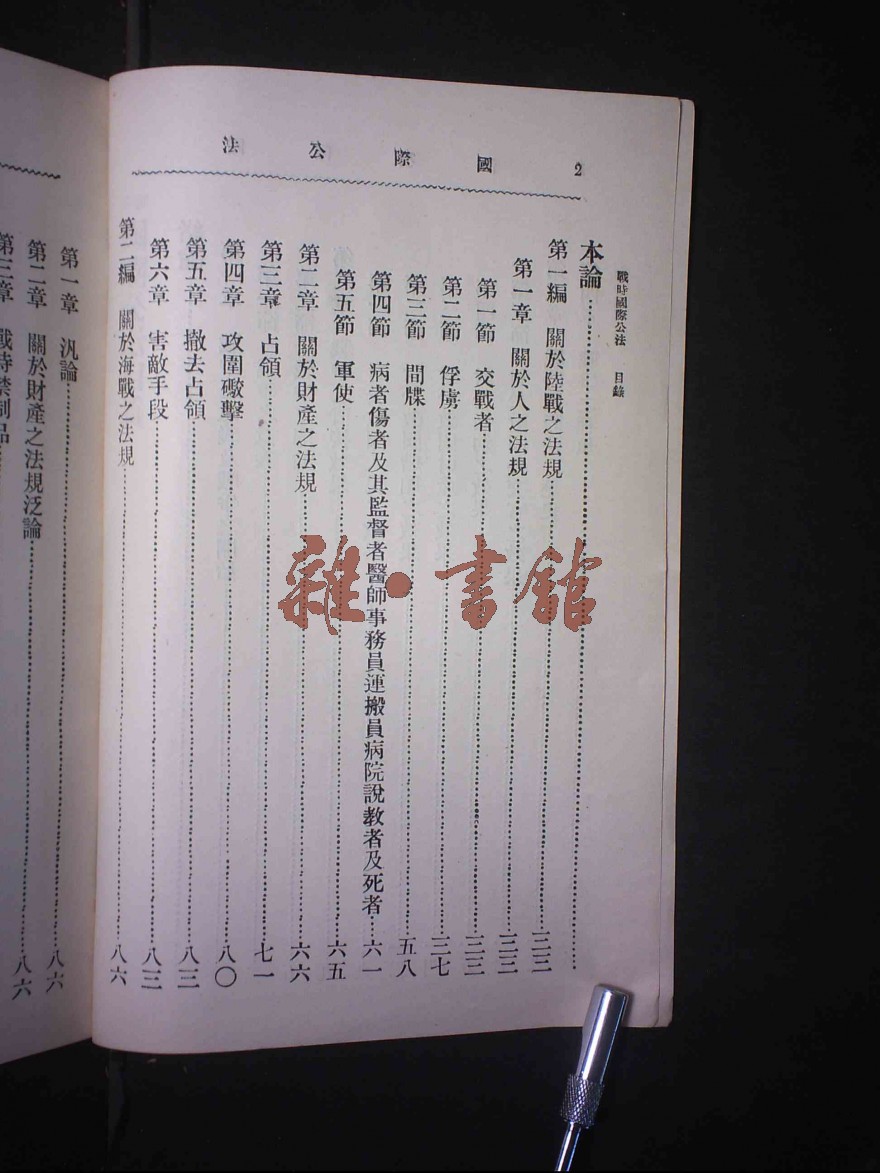 國際公法 2
戰時國際公法 目錄
本論
第一編 關於陸戰之法規 三三
第一章 關於人之法規 三三
第一節 交戰者 三三
第二節 俘虜 三七
第三節 間牒 五八
第四節 病者傷者及其監督者醫師事務員運搬員病院說教者及死者 六一
第五節 軍使 六五
第二章 關於財產之法規 六六
第三章 占領 七一
第四章 攻圍礮擊 八〇
第五章 撤去占領 八三
第六章 害敵手段 八三
第二編 關於海戰之法規 八六
第一章 汎論 八六
第二章 關於財產之法規泛論 八六
第三章 戰時禁制品
雜·書館